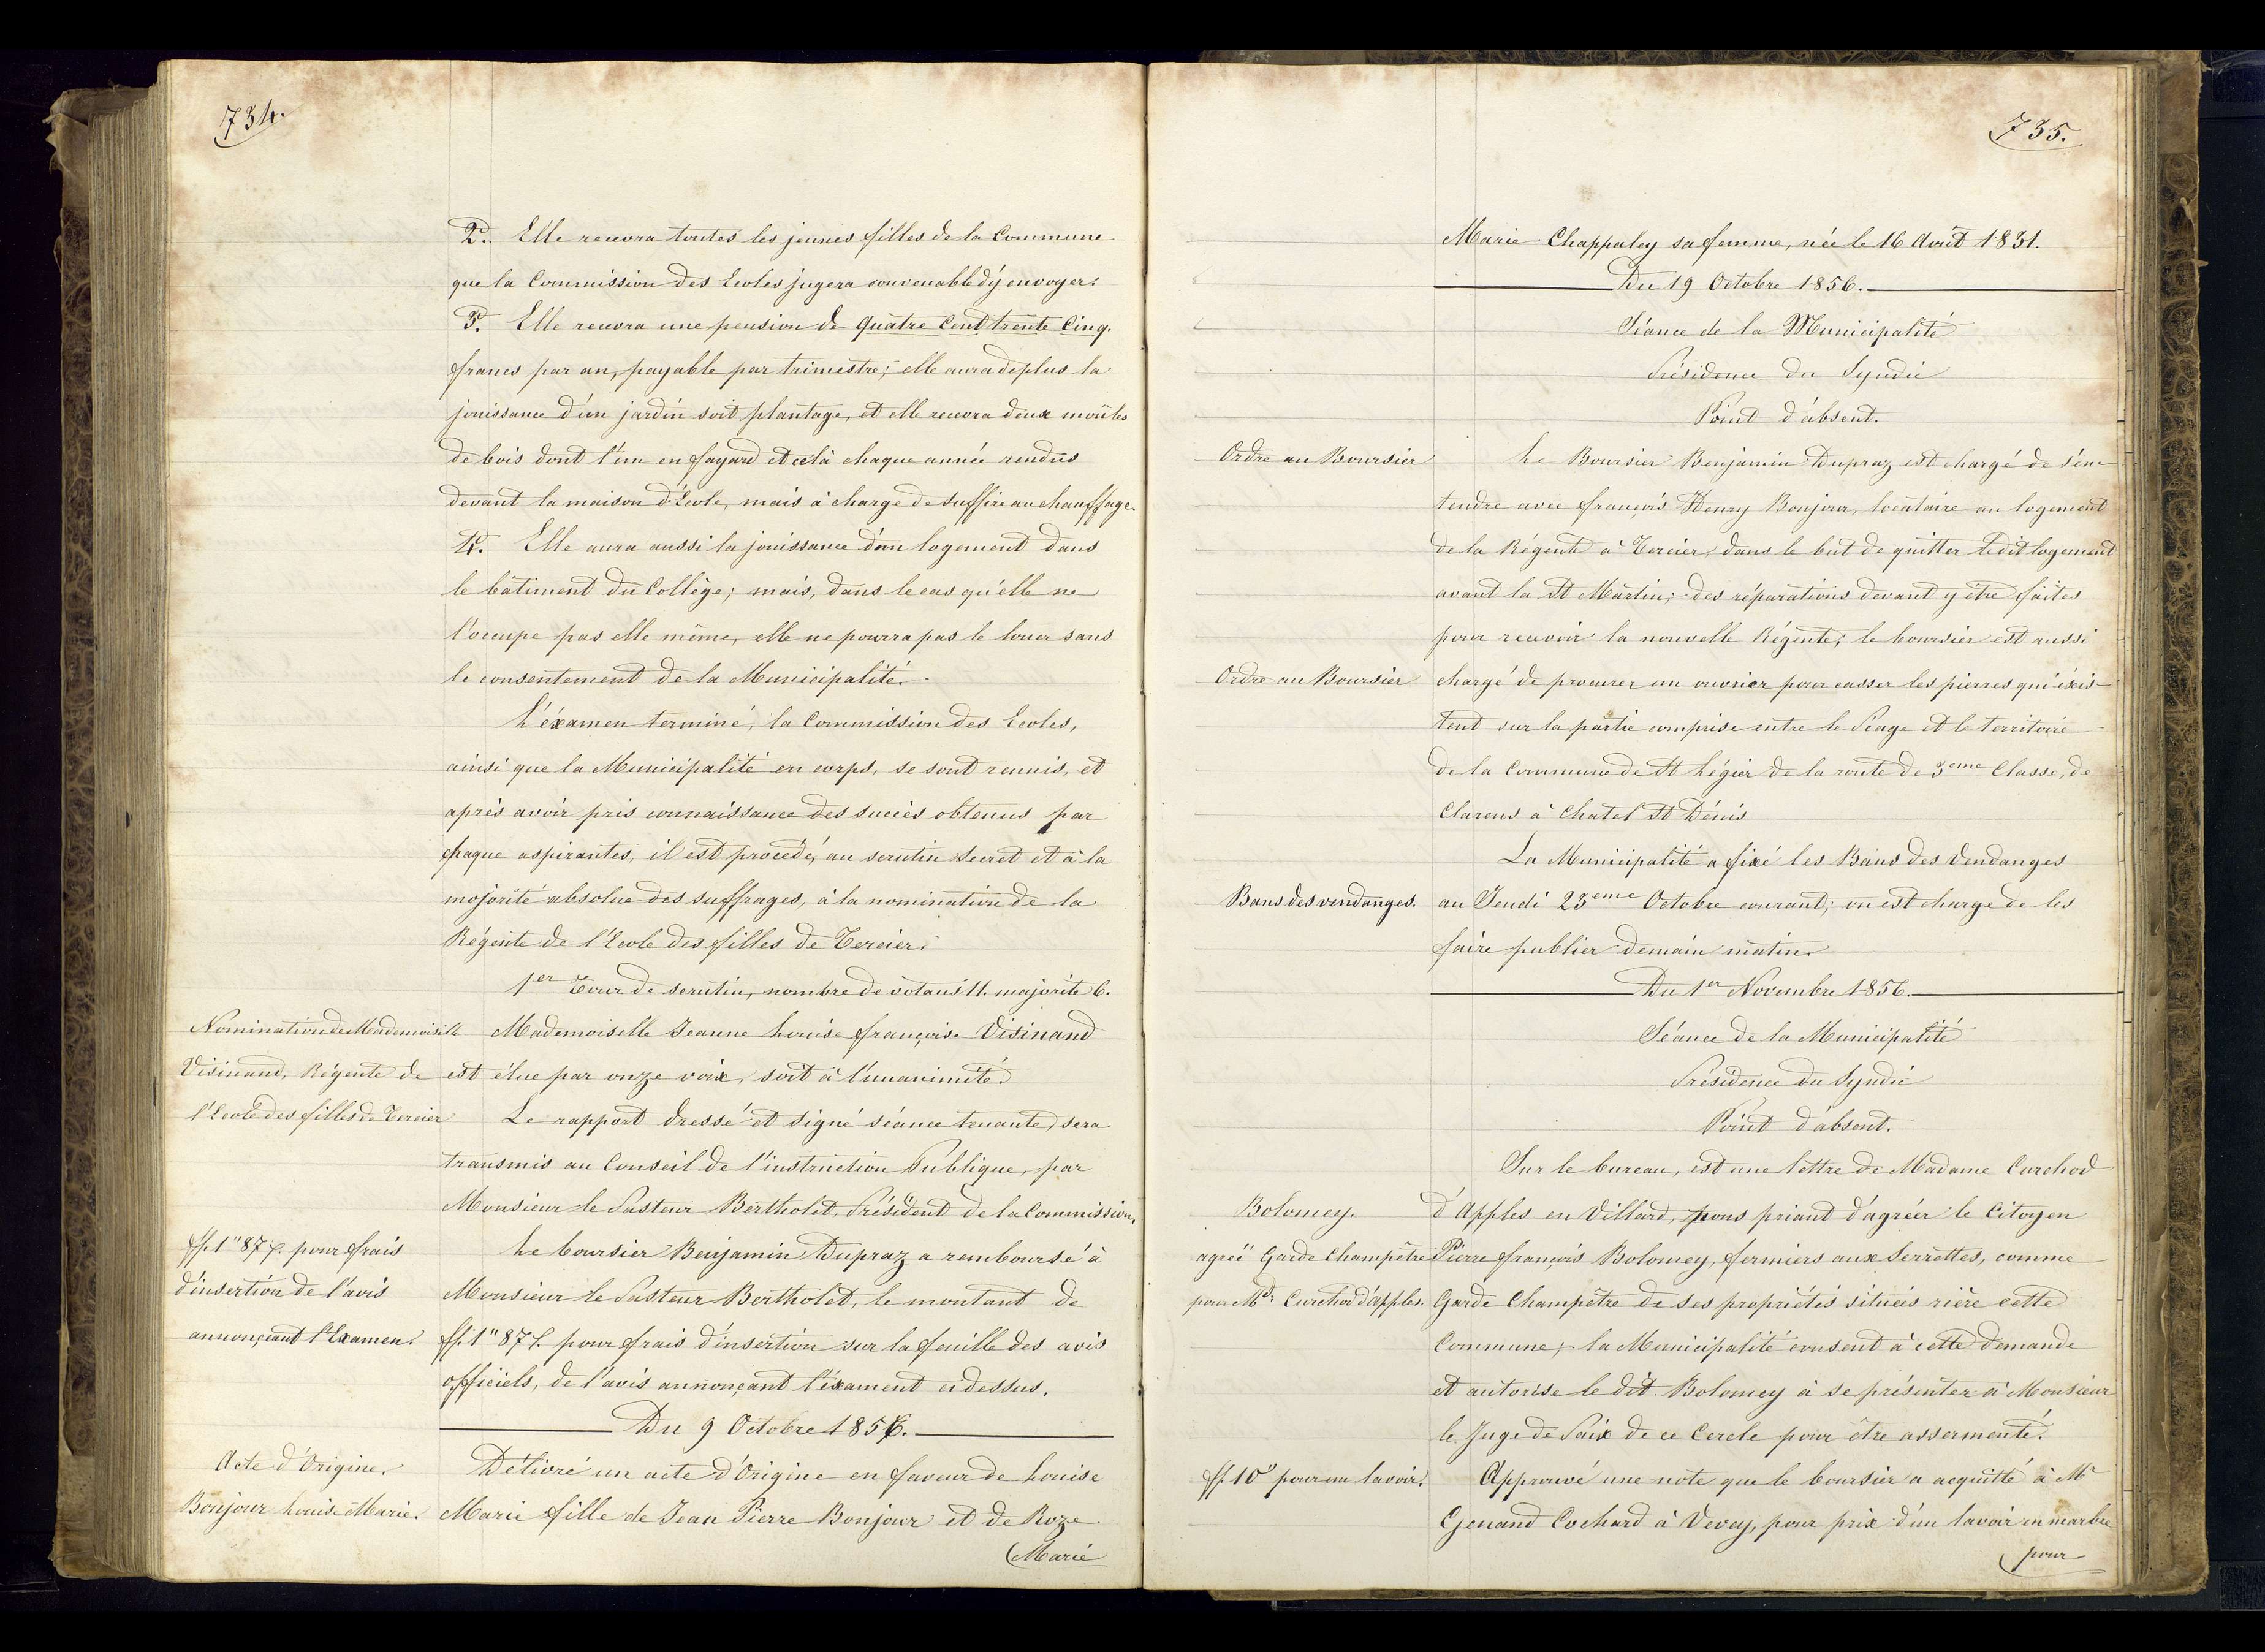 734.
2o. Elle recevra toutes les jeunes filles de la Commune
que la Commission des Ecoles jugera convenable d'y envoyer:
3o. Elle recevra une pension de quatre Cent trente Cinq.
francs par an, payable par trimestre; elle aura de plus la
jouissance d'un jardin soit plantage, et elle recevra deux moules
de bois dont l'un en fayard et celà chaque année rendus
devant la maison d'Ecole, mais à charge de suffire au chauffage.
4o. Elle aura aussi la jouissance d'un logement dans
le bâtiment du Collège; mais, dans le cas qu'elle ne
l'occupe pas elle même, elle ne pourra pas le louer sans
le consentement de la Municipalité.
L'éxamen terminé, la Commission des Ecoles,
ainsi que la Municipalité en corps, se sont reunis, et
après avoir pris connaissance des succès obtenus par
chaque aspirantes, il est procédé, au scrutin secret et à la
majorité absolue des suffrages, à la nomination de la
Régente de l'Ecole des filles de Tercier.
1er Tour de scrutin, nombre de votans 11. majorité 6.
Nomination de Mademoiselle
Visinand, Régente de
l'Ecole des filles de Tercier
Mademoiselle Jeanne Louise françoise Visinand
est élue par onze voix, soit à l'unanimité.
Le rapport dressé et signé séance tenante, sera
transmis au Conseil de l'instruction Publique, par
Monsieur le Pasteur Bertholet, Président de la Commission.
ff. 1"87 r. pour frais
d'insertion de l'avis
annonçant l'Examen.
Le boursier Benjamin Dupraz a remboursé à
Monsieur le Pasteur Bertholet, le montant de
ff. 1"87 r. pour frais d'insertion sur la feuille des avis
officiels, de l'avis annonçant l'éxament ci dessus.
Du 9 Octobre 1856.
Acte d'Origine.
Bonjour Louise Marie.
Délivré un acte d'Origine en faveur de Louise
Marie fille de Jean Pierre Bonjour et de Roze
Marie
735.
Marie Chappaley sa femme, née le 16 Août 1831.
Du 19 Octobre 1856.
Séance de la Municipalité
Présidence du Syndic
Point d'absent.
Ordre au Boursier
Le Boursier Benjamin Dupraz est chargé de s'en-
tendre avec françois Henry Bonjour, locataire au logement
de la Régente à Tercier, dans le but de quitter le dit logement
avant la St Martin; des réparations devant y être faites
pour recevoir la nouvelle Régente; le boursier est aussi
Ordre au Boursier
chargé de procurer un ouvrier pour casser les pierres qui éxis-
tent sur la partie comprise entre le Péage et le territoire
de la Commune de St Légier de la route de 3eme Classe, de
Clarens à Chatel St Dénis
La Municipalité a fixé les Bans des Vendanges
Bans des vendanges.
au Jeudi 23eme Octobre courant; on est chargé de les
faire publier demain matin.
Du 1er Novembre 1856.
Séance de la Municipalité
Présidence du Syndic
Point d'absent.
Sur le bureau, est une lettre de Madame Curchod
Bolomey.
agréé Garde Champêtre
pour Me. Curchod d'Apples.
d'Apples en Villard, nous priant d'agréer le Citoyen
Pierre françois Bolomey, fermiers aux Serrettes, comme
Garde Champêtre de ses propriétés situées rière cette
Commune; la Municipalité consent à cette demande
et autorise le dit Bolomey à se présenter à Monsieur
le Juge de Paix de ce Cercle pour être assermenté.
ff. 10" pour un lavoir.
Approuvé une note que le boursier a acquitté à Mr
Genand Cochard à Vevey, pour prix d'un lavoir en marbre
pour